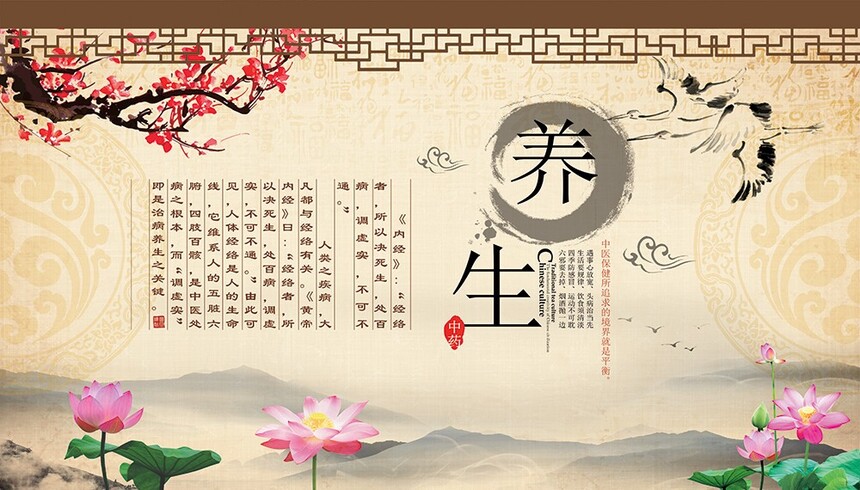 养
生
中药
中医保健所追求的境界就是平衡。
遇事心放宽、头病治当先
生活要规律、饮食须清淡
四季防感冒、运动不可耽
六邪要去掉、烟酒抛一边
Traditional tea culture
Chinese culture
《内经》：“经络
者，所以决死生，处百
病，调虚实，不可不
通。”
人类之疾病，大
凡都与经络有关。《黄帝
内经》曰：“经络者，所
以决死生，处百病，调虚
实，不可不通。”由此可
见，人体经络是人的生命
线，它维系人的五脏六
腑，四肢百骸，是中医处
病之根本，而“调虚实”
即是治病养生之关键。